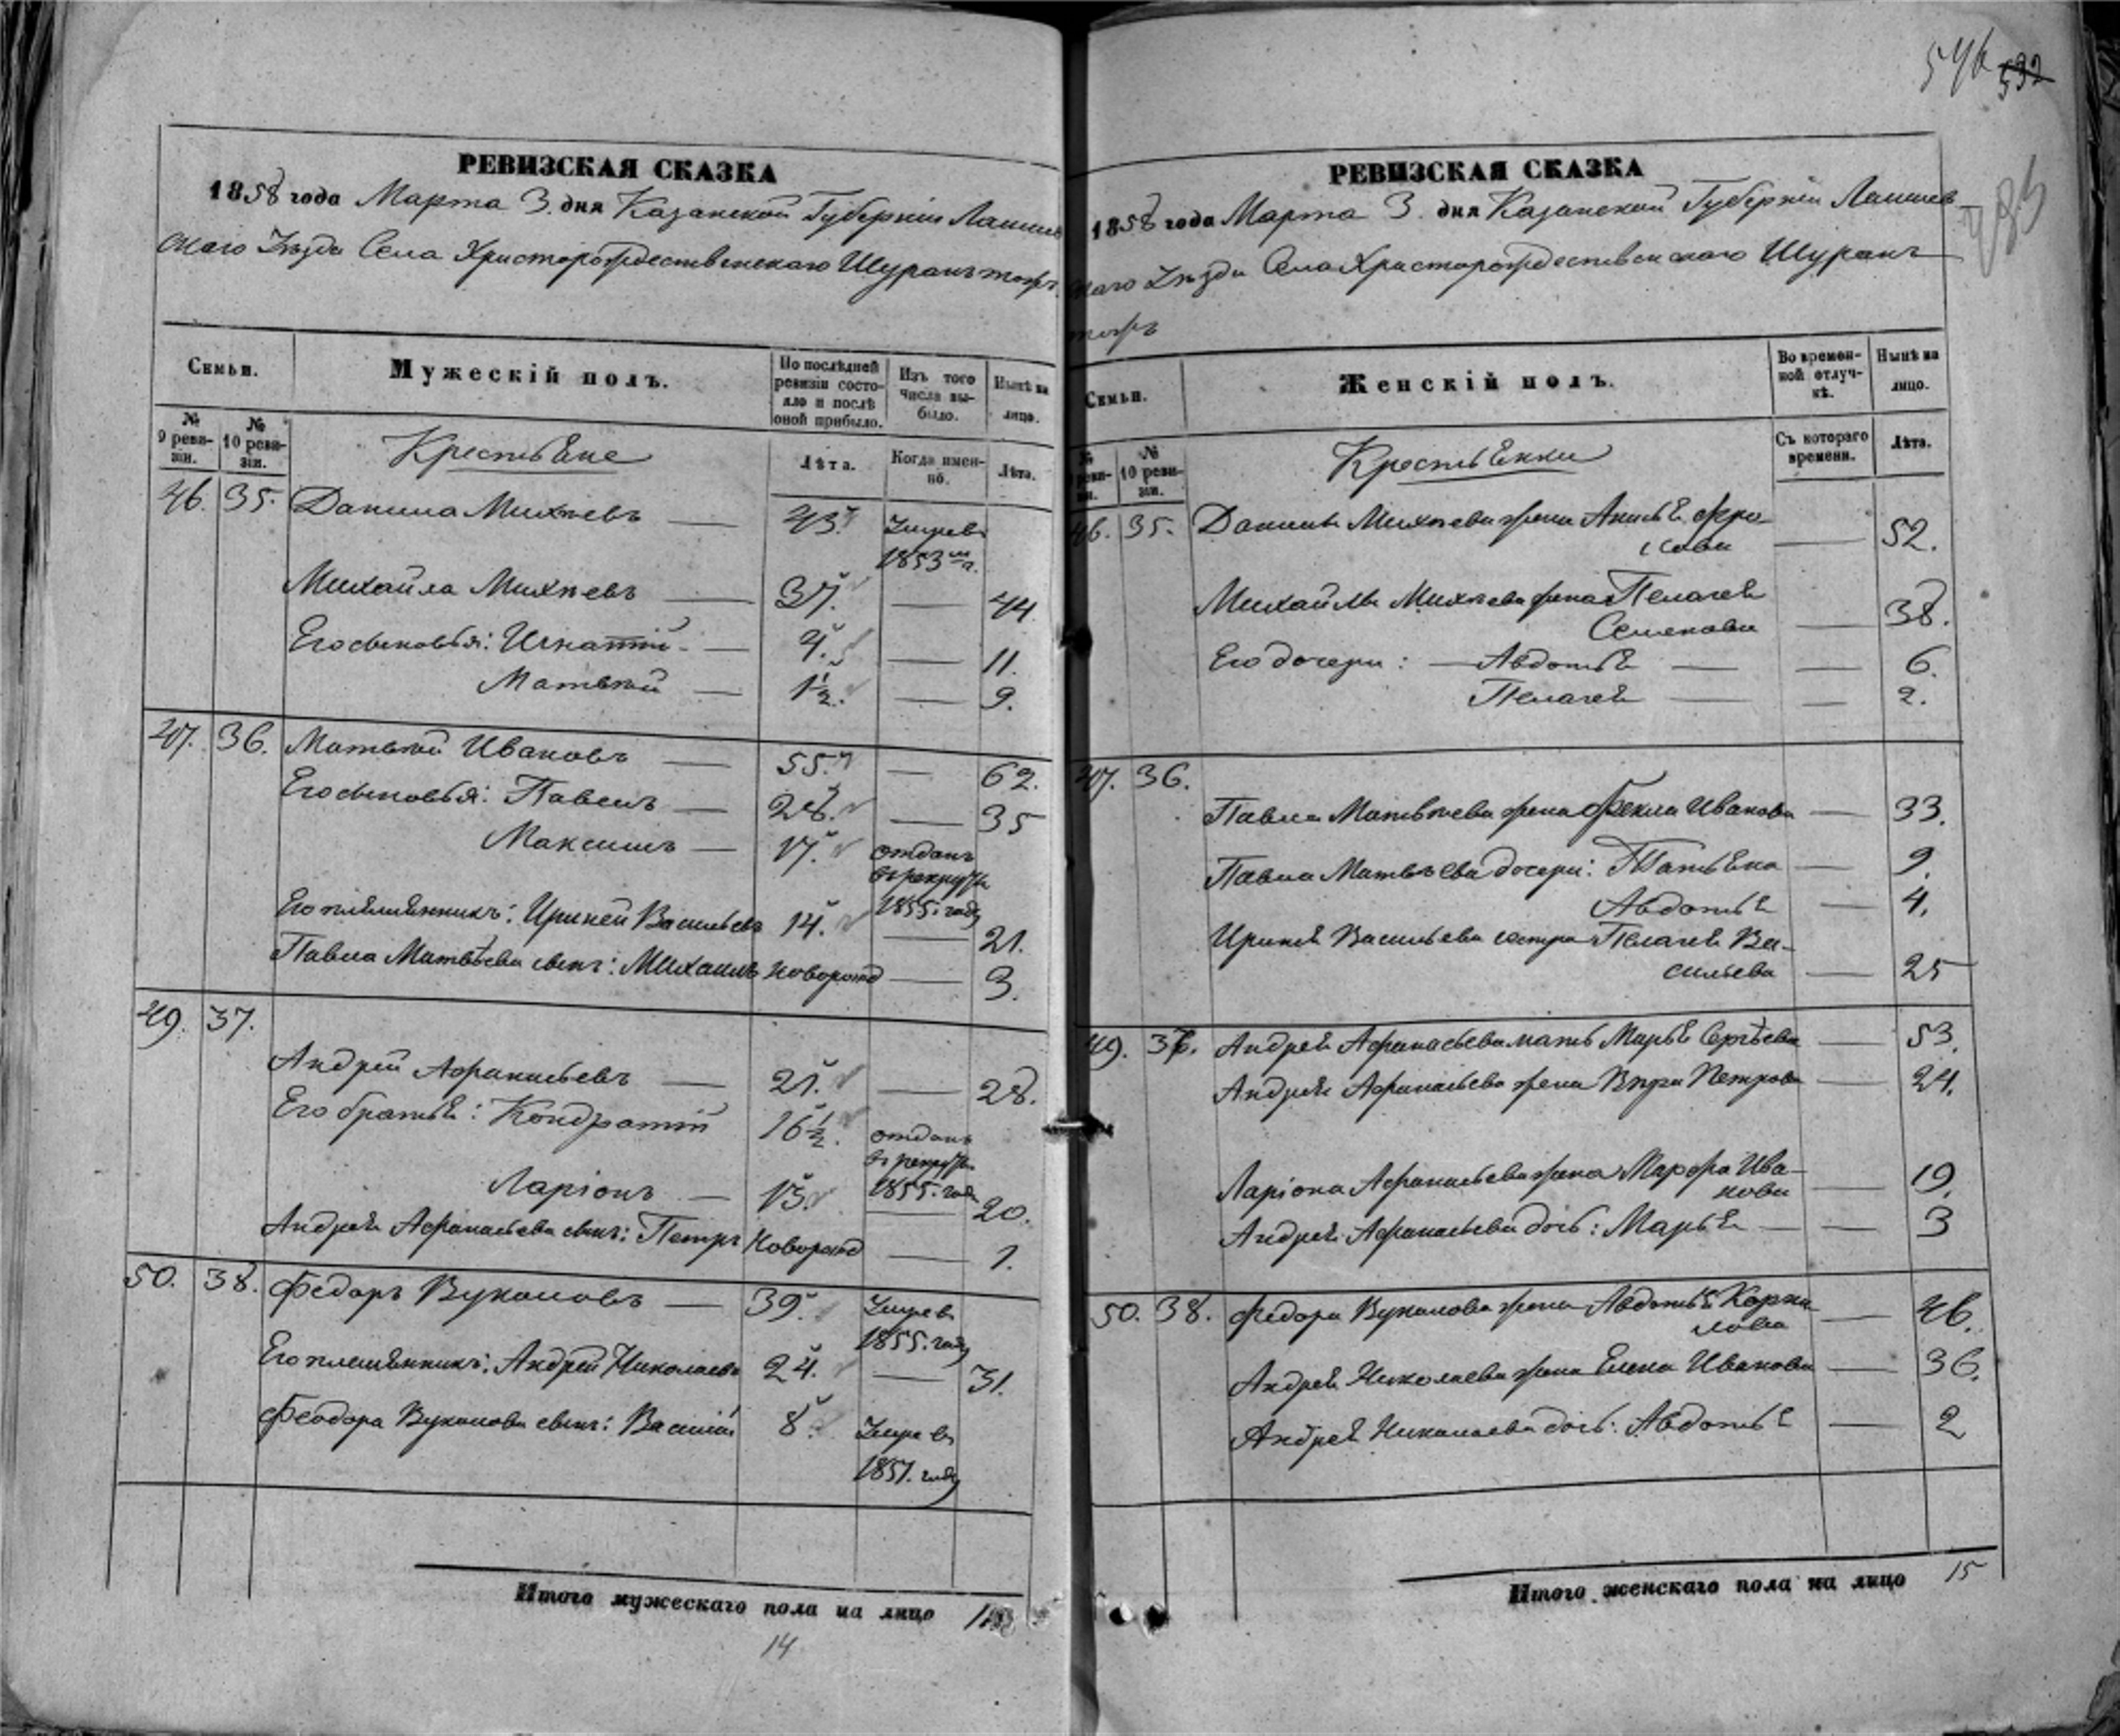 546 532
283
РЕВИЗСКАЯ СКАЗКА
1858 года Марта 3. дня Казанской Губерніи Лаишев
скаго Уѣзда Села Христорождественскаго Шуранъ тожъ
Семьи.
Мужескій полъ.
По послѣдней ревизіи состо-
яло и послѣ оной прибыло.
Изъ того числа вы-
было.
Нынѣ на лицо.
№ 9 реви-
зіи.
№ 10 реви-
зіи.
Крестьяне
Лѣта.
Когда имен-
но.
Лѣта.
46. 35. Данила Михѣевъ — 43. Умре въ
1853 г.
Михайла Михѣевъ — 37. — 44
Его сыновья: Игнатій — 4. — 11.
Матвѣй — 1½. — 9.
47. 36. Матвѣй Ивановъ — 55. — 62.
Его сыновья: Павелъ — 28. — 35
Максимъ — 17. отданъ
въ рекруты
1855. году
Его племянникъ: Ириней Васильевъ 14. — 21.
Павла Матвѣева сынъ: Михаилъ новорожд — 3.
49. 37.
Андрей Афанасьевъ — 21. — 28.
Его братья: Кондратій 16½. отданъ
въ рекруты
1855. году
Ларіонъ — 13. — 20.
Андрея Афанасьева сынъ: Петръ Новорожд — 1.
50. 38. Федоръ Вуколовъ — 39. Умре въ
1855. году
Его племянникъ: Андрей Николаевъ 24. — 31.
Феодора Вуколова сынъ: Василій 8. Умре въ
1851. году
Итого мужескаго пола на лицо
14
РЕВИЗСКАЯ СКАЗКА
1858 года Марта 3. дня Казанской Губерніи Лаишев-
скаго Уѣзда Села Христорождественскаго Шуранъ
тожъ
Семьи.
Женскій полъ.
Во времен-
ной отлуч-
кѣ.
Нынѣ на лицо.
№ 10 реви-
зіи.
Крестьянки
Съ котораго времени.
Лѣта.
46. 35. Данилы Михѣева жена Анисья
— 52.
Михайлы Михѣева жена Пелагея
Семенова — 38.
Его дочери: — Авдотья — — 6.
Пелагея — — 2.
47. 36.
Павла Матвѣева жена Фекла Иванова — 33.
Павла Матвѣева дочери: Татьяна — 9.
Авдотья — 4.
Иринея Васильева сестра Пелагея Ва-
сильева — 25
49. 37. Андрея Афанасьева мать Марья Сергѣева — 53.
Андрея Афанасьева жена Вѣра Петрова — 24.
Ларіона Афанасьева жена Марфа Ива-
нова — 19.
Андрея Афанасьева дочь: Марья — — 3
50. 38. Федора Вуколова жена Авдотья Корни-
лова — 46.
Андрея Николаева жена Елена Иванова — 36.
Андрея Николаева дочь: Авдотья — 2
Итого женскаго пола на лицо 15